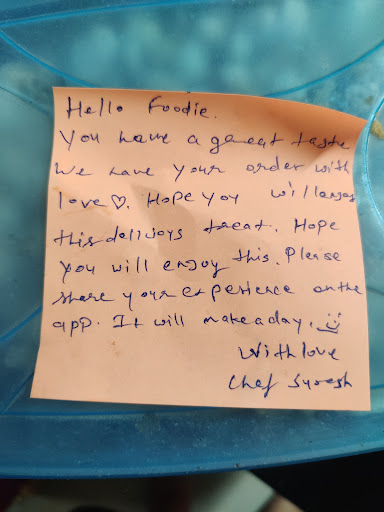 Hello Foodie.
You have a great taste
We have your order with
love♡. Hope you will enjoy
this delicious treat. Hope
you will enjoy this. Please
share your experience on the
app. It will make a day. :)
With love
Chef Suresh